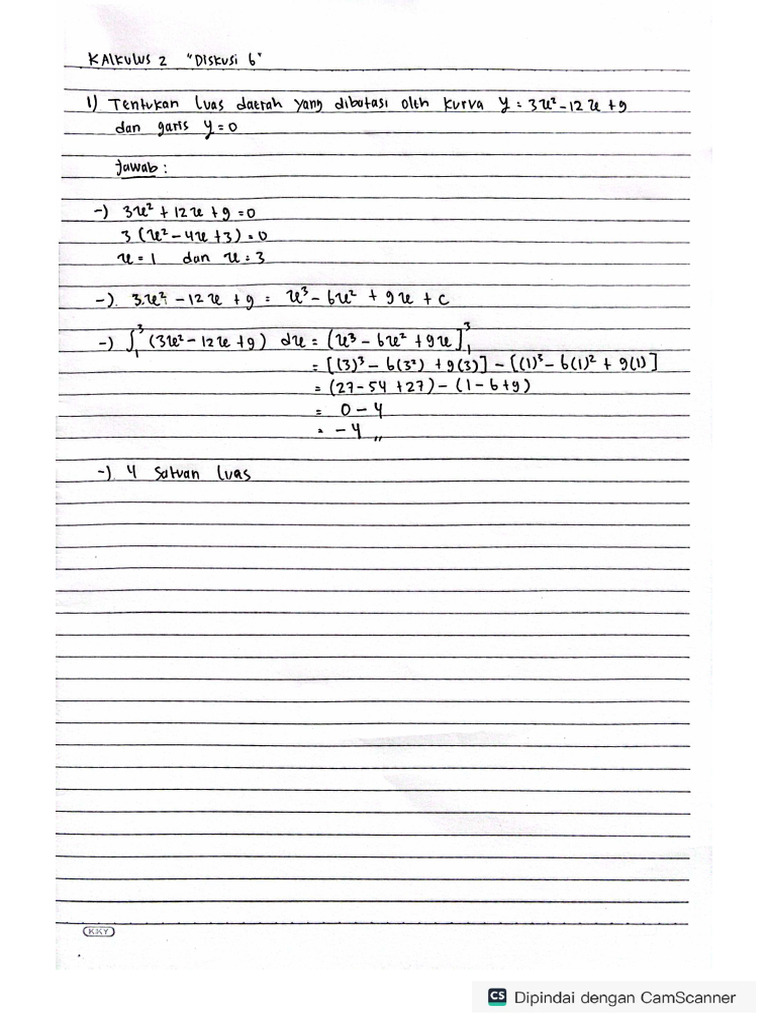 KAlkulus 2 "Diskusi 6"
1) Tentukan luas daerah yang dibatasi oleh kurva y = 3x² - 12x + 9
dan garis y = 0
Jawab :
-) 3x² + 12x + 9 = 0
3 (x² - 4x + 3) = 0
x = 1 dan x = 3
-) 3x² - 12x + 9 = x³ - 6x² + 9x + c
-) ∫₁³ (3x² - 12x + 9) dx = [x³ - 6x² + 9x]₁³
= [(3)³ - 6(3²) + 9(3)] - [(1)³ - 6(1)² + 9(1)]
= (27 - 54 + 27) - (1 - 6 + 9)
= 0 - 4
= - 4 ,,
-) 4 satuan luas
KKY
CS Dipindai dengan CamScanner